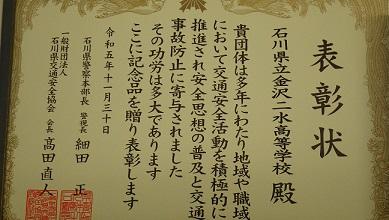 表彰状
石川県立金沢二水高等学校 殿
貴団体は多年にわたり地域や職域
において交通安全活動を積極的に
推進され安全思想の普及と交通
事故防止に寄与されました
その功労は多大であります
ここに記念品を贈り表彰します
令和五年十一月三十日
石川県警察本部長 警視長 細田 正
一般財団法人
石川県交通安全協会 会長 髙田直人